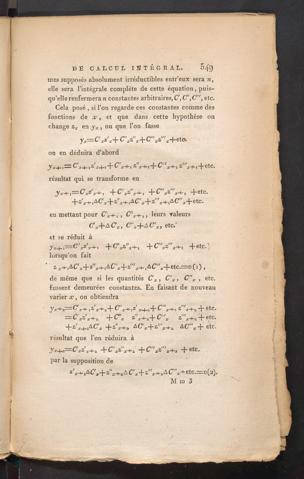 DE CALCUL INTÉGRAL. 549
mes supposés absolument irréductibles entr'eux sera n,
elle sera l'intégrale complète de cette équation, puis-
qu'elle renfermera n constantes arbitraires, C, C', C'', etc.
Cela posé, si l'on regarde ces constantes comme des
fonctions de x, et que dans cette hypothèse on
change z, en yₓ, ou que l'on fasse
yₓ=C'ₓz'ₓ+C''ₓz''ₓ+C'''ₓz'''ₓ+etc.
on en déduira d'abord
yₓ₊₁=C'ₓ₊₁z'ₓ₊₁+C''ₓ₊₁z''ₓ₊₁+C'''ₓ₊₁z'''ₓ₊₁+etc.
résultat qui se transforme en
yₓ₊₁=C'ₓz'ₓ₊₁ +C''ₓz''ₓ₊₁ +C'''ₓz'''ₓ₊₁ +etc.
+z'ₓ₊₁ΔC'ₓ+z''ₓ₊₁ΔC''ₓ+z'''ₓ₊₁ΔC'''ₓ+etc.
en mettant pour C'ₓ₊₁, C''ₓ₊₁, leurs valeurs
C'ₓ+ΔC'ₓ, C''ₓ+ΔC''ₓ, etc.
et se réduit à
yₓ₊₁=C'ₓz'ₓ₊₁ +C''ₓz''ₓ₊₁ +C'''ₓz'''ₓ₊₁ +etc.
lorsqu'on fait
z'ₓ₊₁ΔC'ₓ+z''ₓ₊₁ΔC''ₓ+z'''ₓ₊₁ΔC'''ₓ+etc.=0(1),
de même que si les quantités C'ₓ, C''ₓ, C'''ₓ, etc.
fussent demeurées constantes. En faisant de nouveau
varier x, on obtiendra
yₓ₊₂=C'ₓ₊₁z'ₓ₊₂+C''ₓ₊₁z''ₓ₊₂+C'''ₓ₊₁z'''ₓ₊₂+etc.
=C'ₓz'ₓ₊₂ +C''ₓ z''ₓ₊₂+C'''ₓ z'''ₓ₊₂+etc.
+z'ₓ₊₂ΔC'ₓ+z''ₓ₊₂ ΔC''ₓ+z'''ₓ₊₂ ΔC'''ₓ+etc.
résultat que l'on réduira à
yₓ₊₂=C'ₓz'ₓ₊₂ +C''ₓz''ₓ₊₂ +C'''ₓz'''ₓ₊₂ +etc.
par la supposition de
z'ₓ₊₂ΔC'ₓ+z''ₓ₊₂ΔC''ₓ+z'''ₓ₊₂ΔC'''ₓ+etc.=0(2).
M m 3